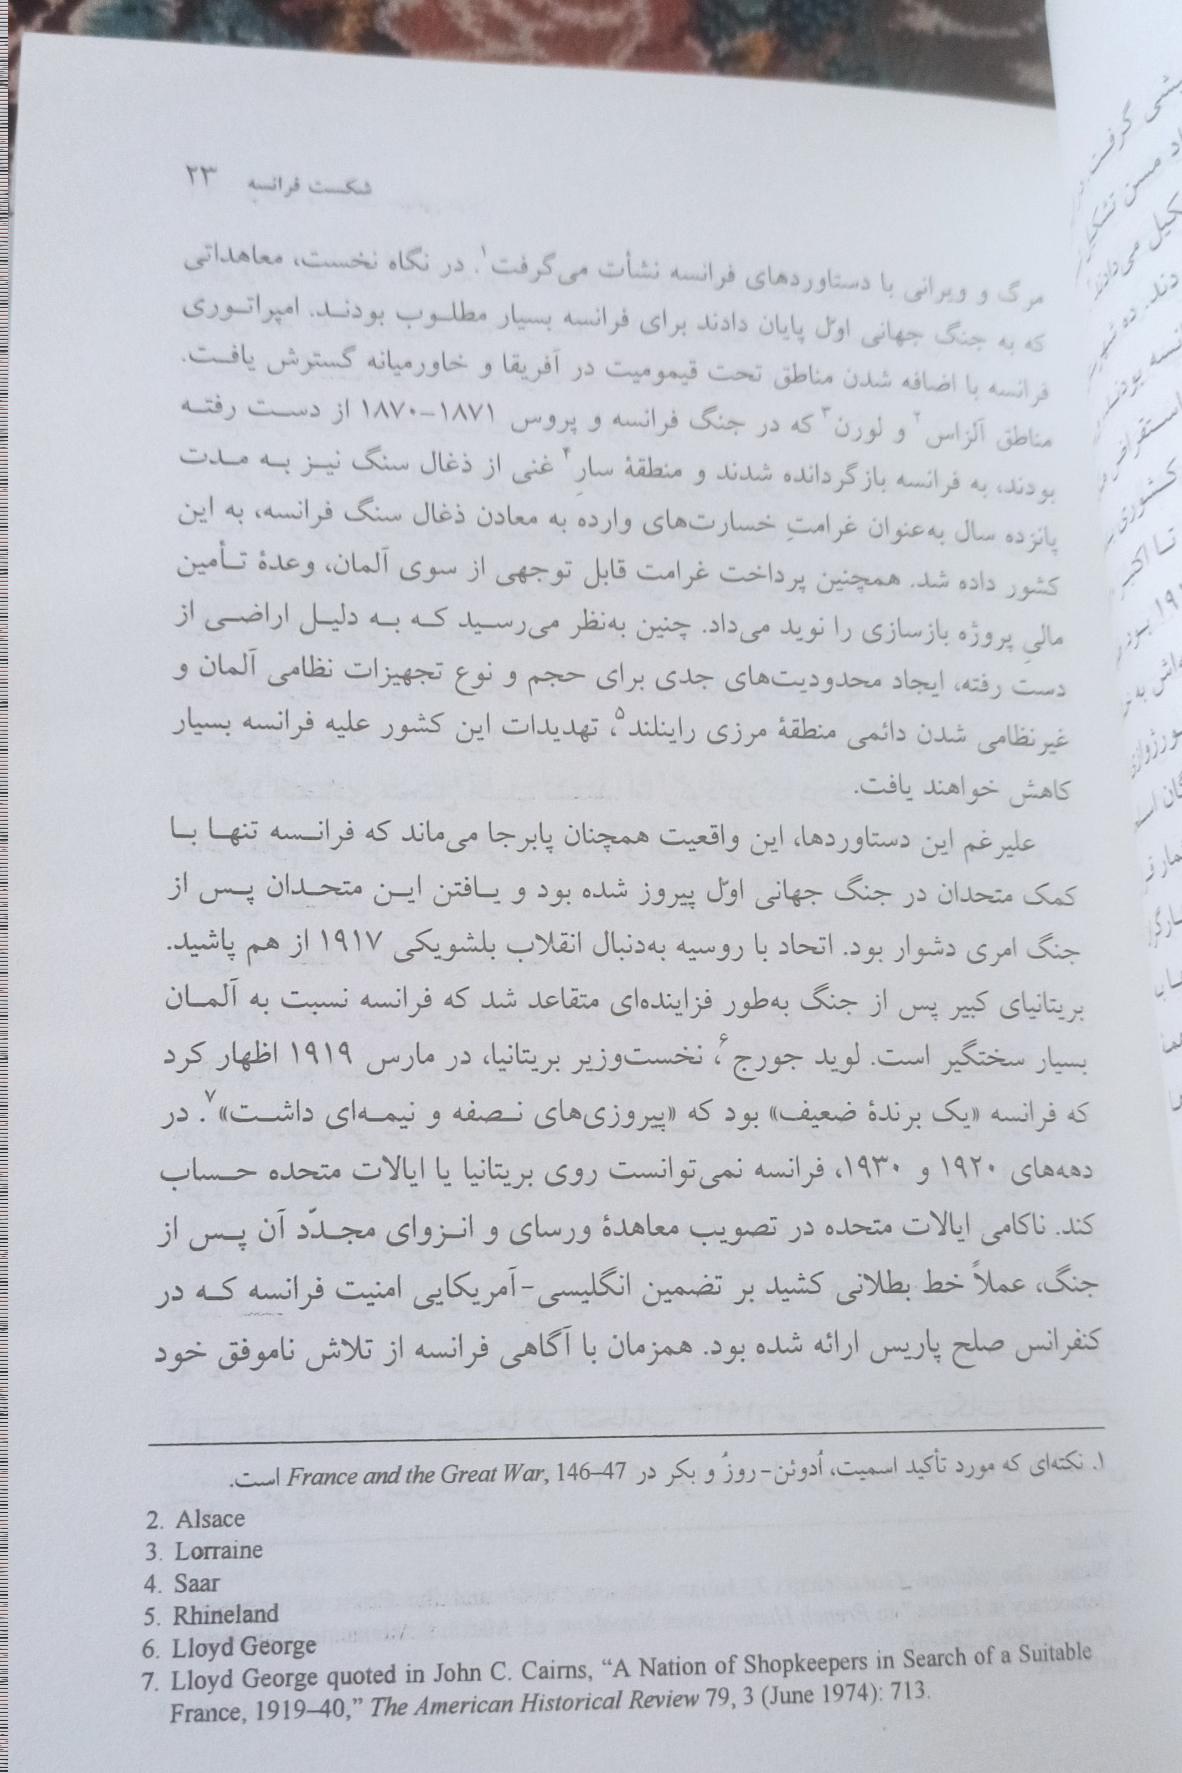 شکست فرانسه ۲۳
مرگ و ویرانی با دستاوردهای فرانسه نشأت می‌گرفت۱. در نگاه نخست، معاهداتی
که به جنگ جهانی اوّل پایان دادند برای فرانسه بسیار مطلـوب بودنـد. امپراتـوری
فرانسه با اضافه شدن مناطق تحت قیمومیت در آفریقا و خاورمیانه گسترش یافـت.
مناطق آلزاس۲ و لورن۳ که در جنگ فرانسه و پروس ۱۸۷۱-۱۸۷۰ از دسـت رفتـه
بودند، به فرانسه بازگردانده شدند و منطقهٔ سارِ۴ غنی از ذغال سنگ نیـز بـه مـدت
پانزده سال به‌عنوان غرامتِ خسارت‌های وارده به معادن ذغال سنگ فرانسه، به این
کشور داده شد. همچنین پرداخت غرامت قابل توجهی از سوی آلمان، وعدهٔ تـأمین
مالیِ پروژه بازسازی را نوید می‌داد. چنین به‌نظر می‌رسـید کـه بـه دلیـل اراضـی از
دست رفته، ایجاد محدودیت‌های جدی برای حجم و نوع تجهیزات نظامی آلمان و
غیرنظامی شدن دائمی منطقهٔ مرزی راینلند۵، تهدیدات این کشور علیه فرانسه بسیار
کاهش خواهند یافت.
علیرغم این دستاوردها، این واقعیت همچنان پابرجا می‌ماند که فرانـسه تنهـا بـا
کمک متحدان در جنگ جهانی اوّل پیروز شده بود و یـافتن ایـن متحـدان پـس از
جنگ امری دشوار بود. اتحاد با روسیه به‌دنبال انقلاب بلشویکی ۱۹۱۷ از هم پاشید.
بریتانیای کبیر پس از جنگ به‌طور فزاینده‌ای متقاعد شد که فرانسه نسبت به آلمـان
بسیار سختگیر است. لوید جورج۶، نخست‌وزیر بریتانیا، در مارس ۱۹۱۹ اظهار کرد
که فرانسه «یک برندهٔ ضعیف» بود که «پیروزی‌های نـصفه و نیمـه‌ای داشـت»۷. در
دهه‌های ۱۹۲۰ و ۱۹۳۰، فرانسه نمی‌توانست روی بریتانیا یا ایالات متحده حـساب
کند. ناکامی ایالات متحده در تصویب معاهدهٔ ورسای و انـزوای مجـدّد آن پـس از
جنگ، عملاً خط بطلانی کشید بر تضمین انگلیسی-آمریکایی امنیت فرانسه کـه در
کنفرانس صلح پاریس ارائه شده بود. همزمان با آگاهی فرانسه از تلاش ناموفق خود
۱. نکته‌ای که مورد تأکید اسمیت، اُدوئن-روزُ و بکر در France and the Great War, 146–47 است.
2. Alsace
3. Lorraine
4. Saar
5. Rhineland
6. Lloyd George
7. Lloyd George quoted in John C. Cairns, “A Nation of Shopkeepers in Search of a Suitable
France, 1919–40,” The American Historical Review 79, 3 (June 1974): 713.